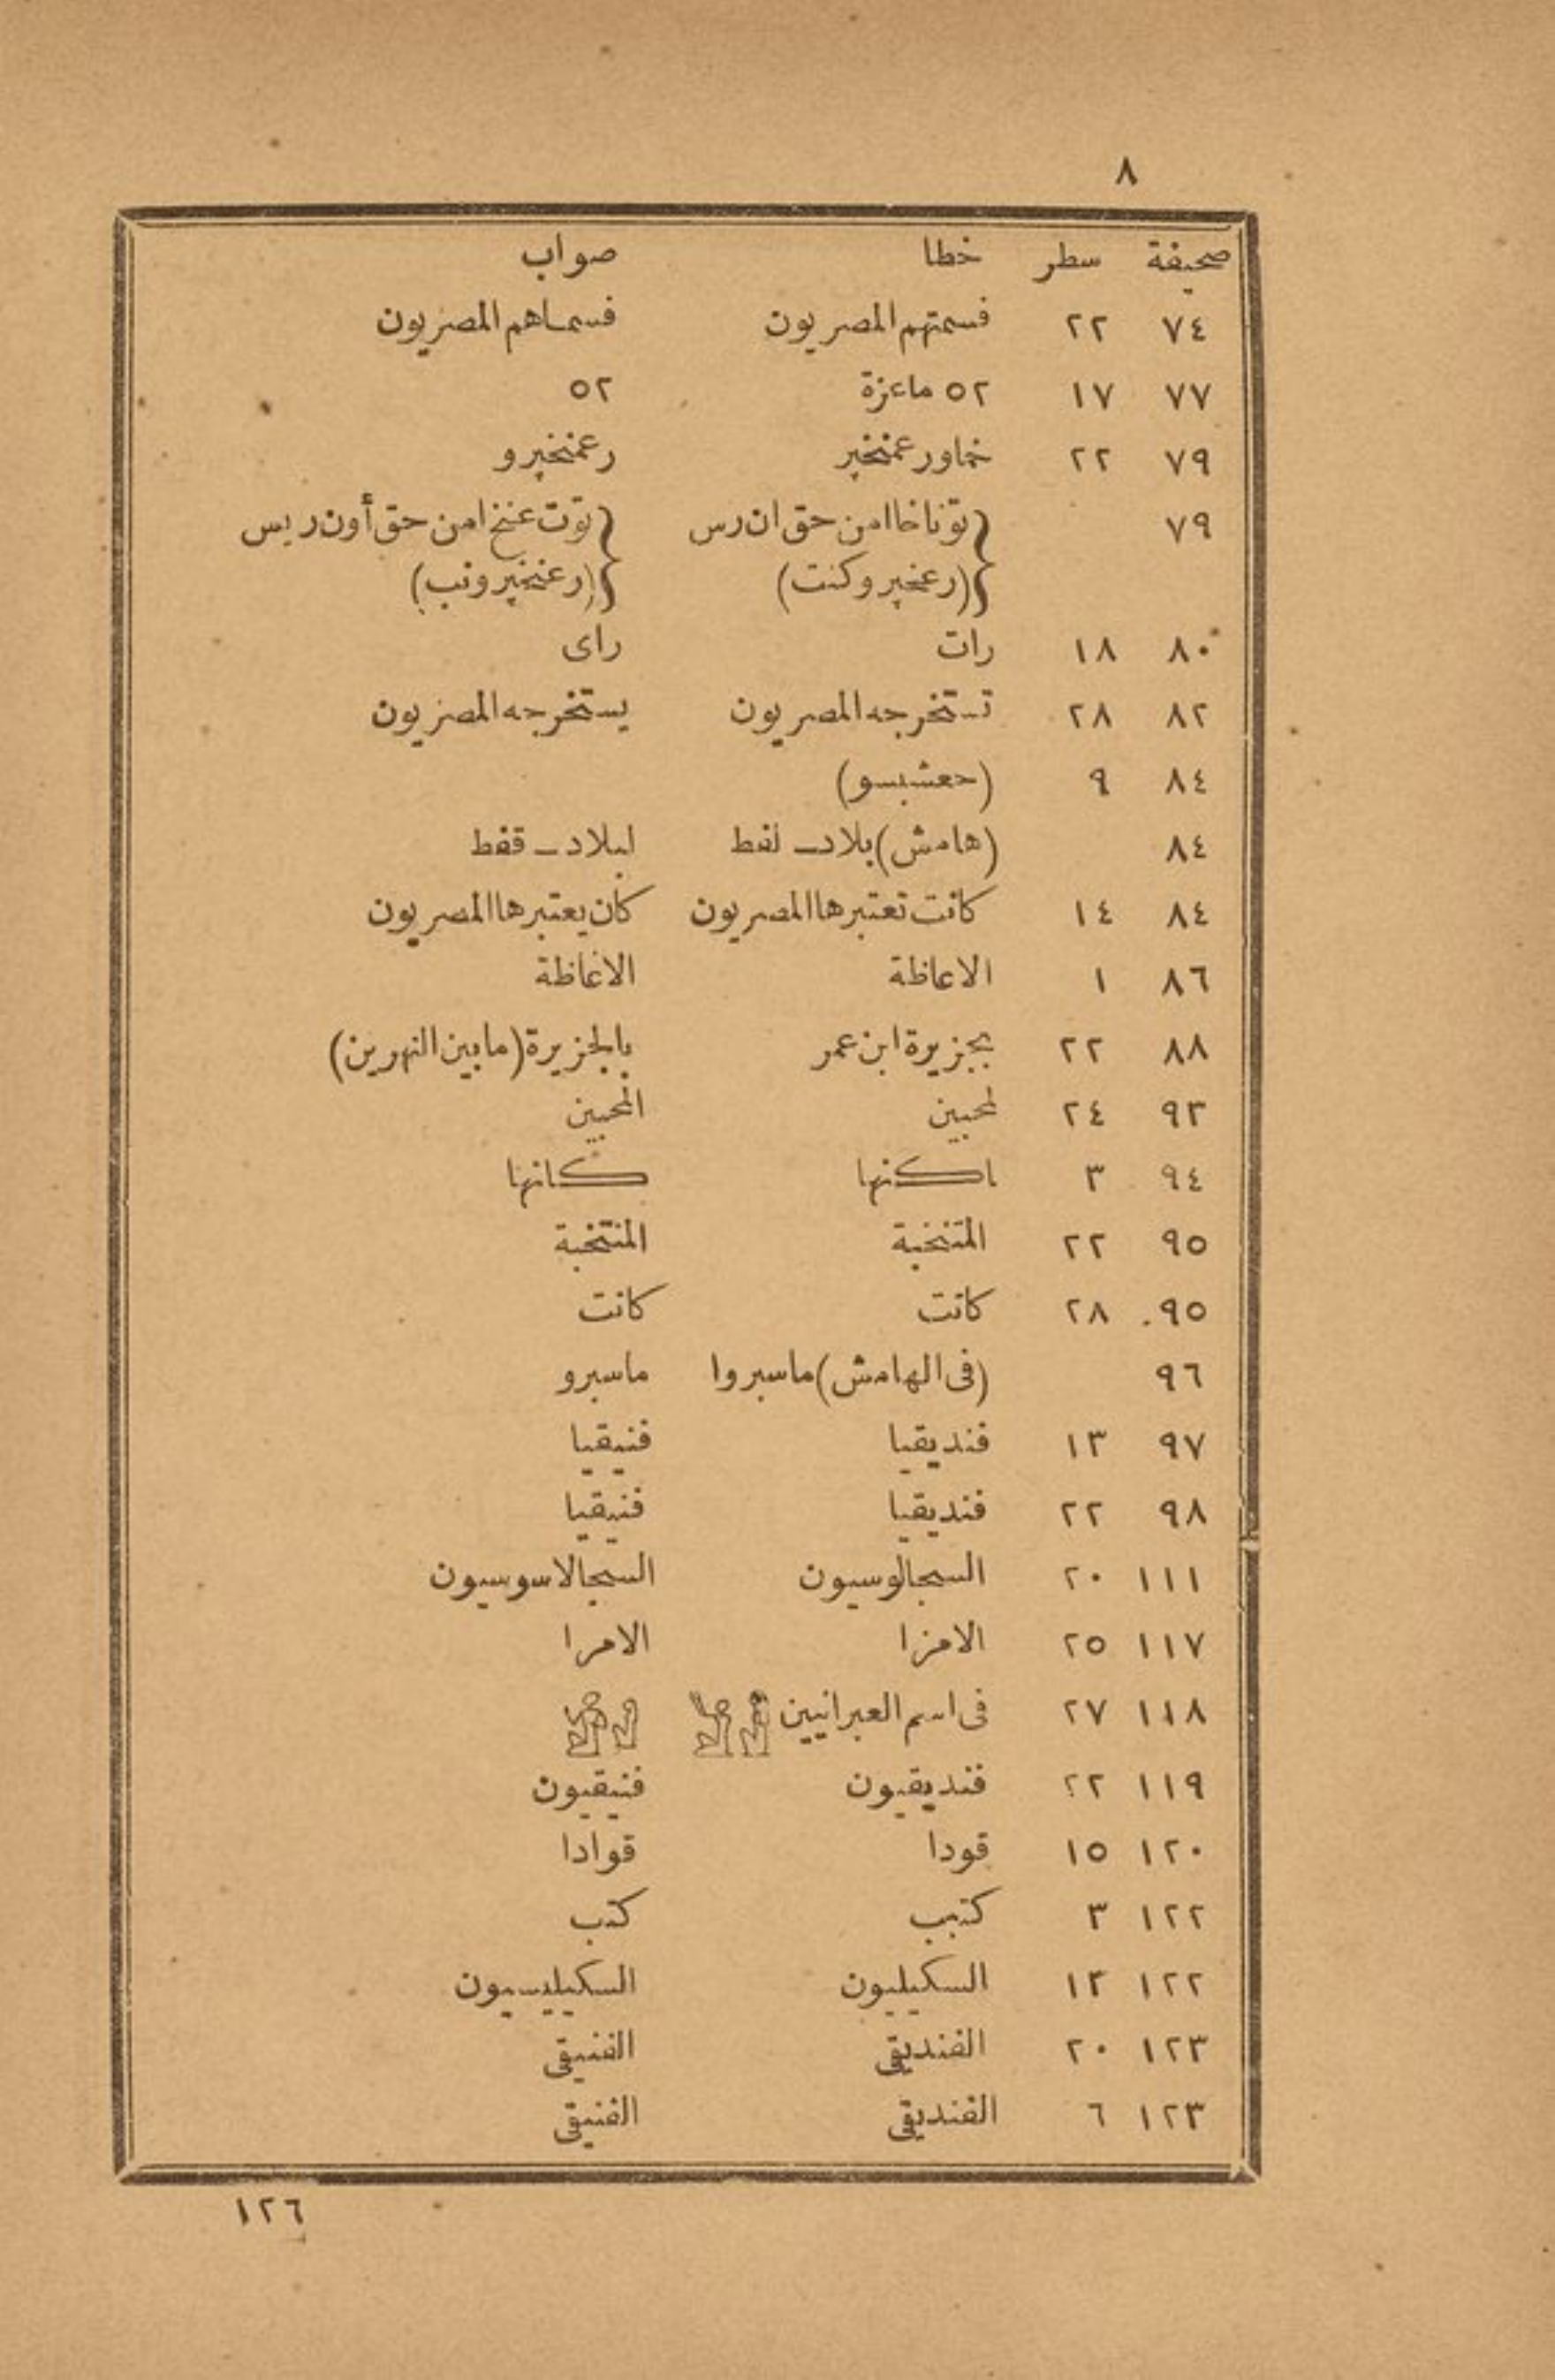 ٨
صحيفة سطر خطا صواب
٧٤ ٢٢ فسمتهم المصريون فسماهم المصريون
٧٧ ١٧ ٥٢ ماعزة ٥٢
٧٩ ٢٢ خاورعمنخپر رعمنخپرو
٧٩ توناخاامن حق ان رس توت عنخ امن حق أون ريس
(رعخپروكنت) (رعنخپرونب)
٨٠ ١٨ رات راى
٨٢ ٢٨ تستخرجه المصريون يستخرجه المصريون
٨٤ ٩ (حعشبسو)
٨٤ (هامش) بلاد ـ لفط لبلاد ـ قفط
٨٤ ١٤ كانت تعتبرها المصريون كان يعتبرها المصريون
٨٦ ١ الاعاظة الاغاظة
٨٨ ٢٢ بجزيرة ابن عمر بالجزيرة (مابين النهرين)
٩٣ ٢٤ لمحبين المحبين
٩٤ ٣ اكنها كانها
٩٥ ٢٢ المتنخبة المنتخبة
٩٥ ٢٨ كاتت كانت
٩٦ (فى الهامش) ماسبروا ماسبرو
٩٧ ١٣ فنديقيا فنيقيا
٩٨ ٢٢ فنديقيا فنيقيا
١١١ ٢٠ السجالوسيون السجالاسوسيون
١١٧ ٢٥ الامزا الامرا
١١٨ ٢٧ فى اسم العبرانيين
١١٩ ٢٢ فنديقيون فنيقيون
١٢٠ ١٥ قودا قوادا
١٢٢ ٣ كتبب كتب
١٢٢ ١٣ السكيليون السكيليسيون
١٢٣ ٢٠ الفنديقى الفنيقى
١٢٣ ٦ الفنديقى الفنيقى
١٢٦